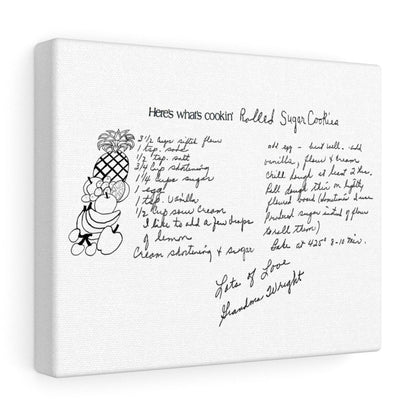 Here's what's cookin' Rolled Sugar Cookies
3 1/2 cups sifted flour
1 tsp. soda
1/2 tsp. salt
3/4 cup shortening
1 1/4 cups sugar
1 egg
1 tsp. vanilla
1/2 cup sour cream
I like to add a few drops
of lemon
Cream shortening & sugar
add egg - beat well. add
vanilla, flour & cream
Chill dough at least 2 hrs.
Roll dough thin on lightly
floured board (sometimes I use
Powdered sugar instead of flour
to roll them)
Bake at 425° 8-10 min.
Lots of Love
Grandma Wright